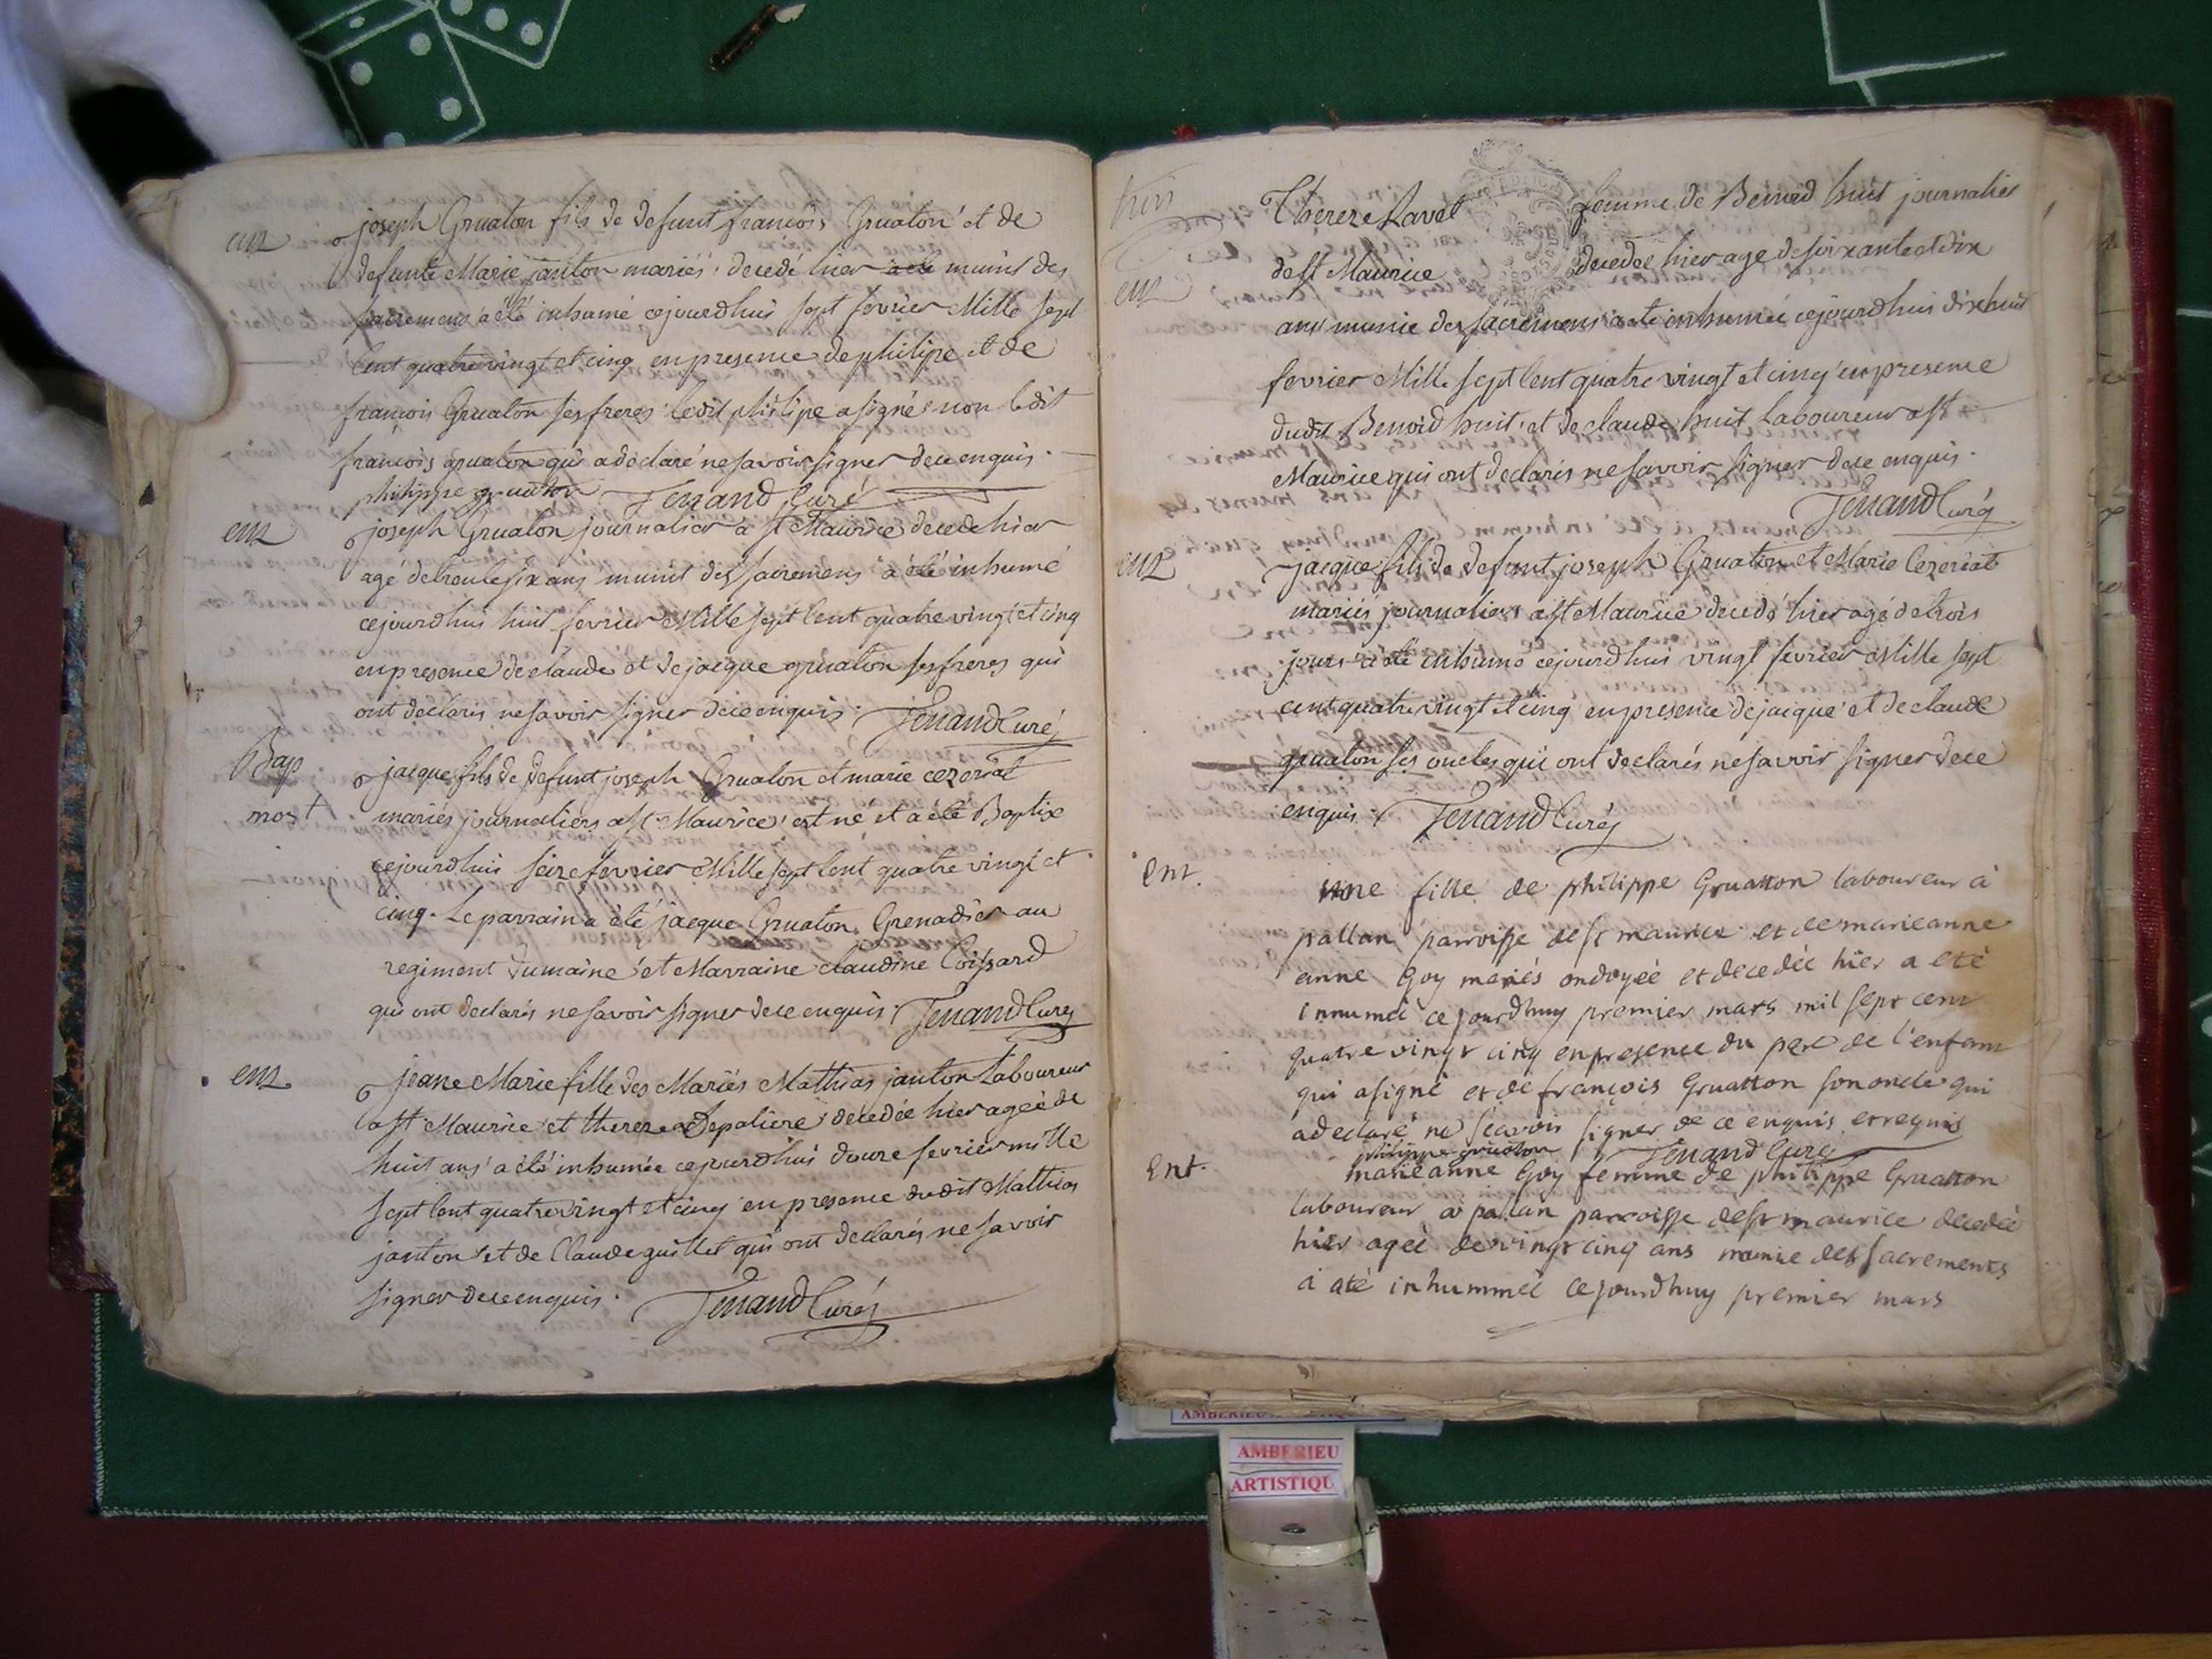 ent
joseph Gruaton fils de defunt francois Gruaton et de
defunte Marie janton mariés decedé hier a ete munit des
sacremens a été inhumé cejourdhui sept fevrier Mille sept
Cent quatre vingt et cinq en presence de philipe et de
francois Gruaton ses freres ledit philipe a signé non ledit
francois gruaton qui a déclaré ne savoir signer de ce enquis.
philippe gruaton Tenand Curé
ent
joseph Gruaton journalier a st Maurice decede hier
agé de trente six ans munit des sacremens a été inhumé
cejourdhui huit fevrier Mille sept Cent quatre vingt et cinq
en presence de claude et de jacque gruaton ses freres qui
ont declarés ne savoir signer de ce enquis. Tenand Curé
Bap
mort
jacque fils de defunt joseph Gruaton et marie cezeriat
mariés journaliers a st Maurice est né et a été Baptize
cejourdhui seize fevrier Mille sept Cent quatre vingt et
cinq. Le parrain a été jacque Gruaton Grenadier au
regiment dumaine et Marraine claudine Coissard
qui ont declarés ne savoir signer de ce enquis. Tenand Curé
ent
jeane Marie fille des Mariés Mathias janton Laboureur
a st Maurice et thereze Depaliere decedée hier ageé de
huit ans a été inhumée cejourdhui douze fevrier mille
sept Cent quatre vingt et cinq en presence dudit Mathias
janton et de Claude guillet qui ont declarés ne savoir
signer de ce enquis. Tenand Curé
trois
Thereze Ravet femme de Benoid huit journalier
ent
de st Maurice decedée hier age de soixante et dix
ans munie des sacremens a ete inhumée cejourdhui dixhuit
fevrier Mille sept Cent quatre vingt et cinq en presence
dudit Benoid huit et de claude huit Laboureur a st
Maurice qui ont declarés ne savoir signer de ce enquis.
Tenand Curé
ent
jacque fils de defunt joseph Gruaton et Marie Cezeriat
mariés journaliers a st Maurice decedé hier agé de trois
jours a été inhumé cejourdhui vingt fevrier Mille sept
cent quatre vingt et cinq en presence de jacque et de claude
gruaton ses oncles qui ont declarés ne savoir signer de ce
enquis. Tenand Curé
Ent.
une fille de philippe Gruatton laboureur à
pallan parroisse de st maurice et de marieanne
anne Goy mariés ondoyée et decedée hier a eté
innumée ce jourdhuy premier mars mil sept cent
quatre vingt cinq en presence du pere de l'enfant
qui a signé et de françois Gruatton son oncle qui
a declaré ne scavoir signer de ce enquis et requis
philippe gruaton Tenand Curé
Ent.
marieanne Goy femme de philippe Gruatton
laboureur a palan parroisse de st maurice decedée
hier ageé de vingt cinq ans munie des sacrements
a été inhummeé ce jourdhuy premier mars
AMBERIEU
AMBERIEU
ARTISTIQU